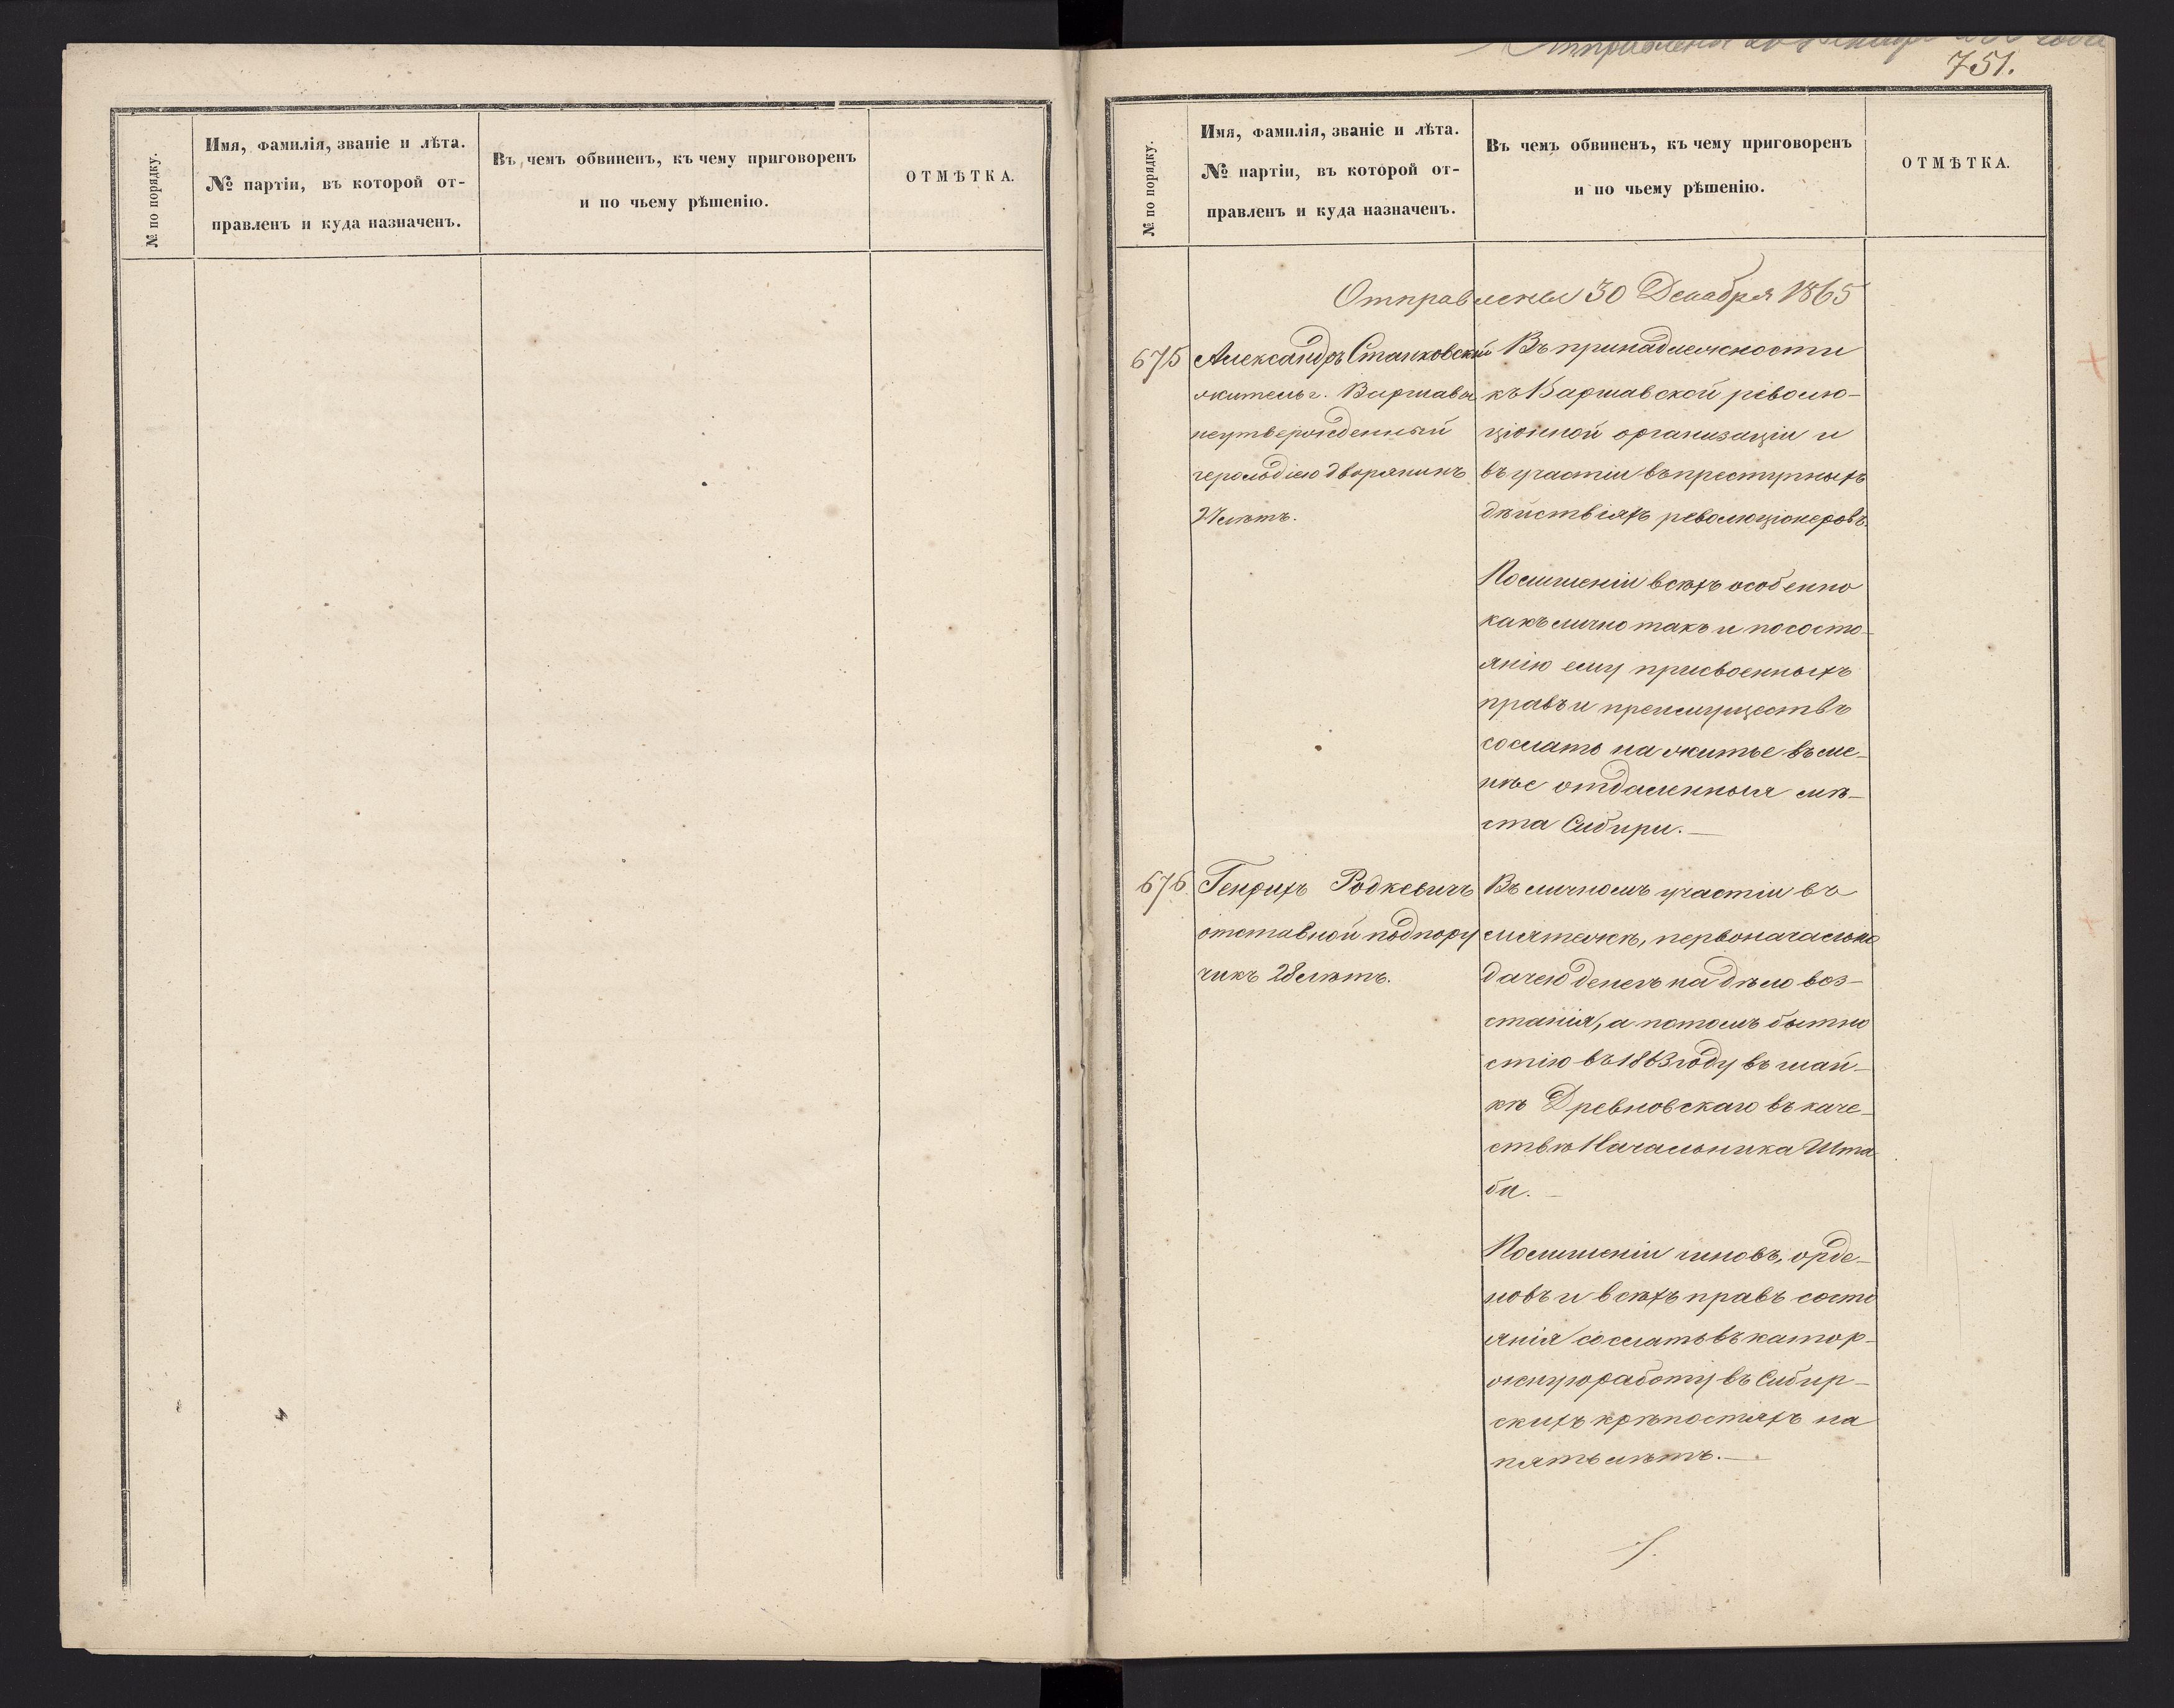 № по порядку.
Имя, фамилія, званіе и лѣта.
№ партіи, въ которой от-
правленъ и куда назначенъ.
Въ чемъ обвиненъ, къ чему приговоренъ
и по чьему рѣшенію.
ОТМѢТКА.
751.
№ по порядку.
Имя, фамилія, званіе и лѣта.
№ партіи, въ которой от-
правленъ и куда назначенъ.
Въ чемъ обвиненъ, къ чему приговоренъ
и по чьему рѣшенію.
ОТМѢТКА.
Отправлены 30 Декабря 1865
675
Александръ Станковскій
житель г. Варшавы
неутвержденный
герольдіею дворянинъ
лѣтъ.
Въ принадлежности
къ Варшавской револю-
ціонной организаціи и
въ участіи въ преступныхъ
дѣйствіяхъ революціонеровъ.
По лишеніи всѣхъ особенно
какъ лично такъ и по состо-
янію ему присвоенныхъ
правъ и преимуществъ
сослать на житье въ ме-
нѣе отдаленныя мѣ-
ста Сибири.—
676
Генрихъ Родкевичъ
отставной подпору
чикъ 28 лѣтъ.
Въ личномъ участіи въ
мятежѣ, первоначально
дачею денегъ на дѣло воз-
станія, а потомъ бытно
стію въ 1863 году въ шай-
кѣ Древновскаго въ каче-
ствѣ Начальника Шта
ба.—
По лишеніи чиновъ, орде-
новъ и всѣхъ правъ состо
янія сослать въ катор-
жную работу въ Сибир-
скихъ крѣпостяхъ на
пять лѣтъ.—